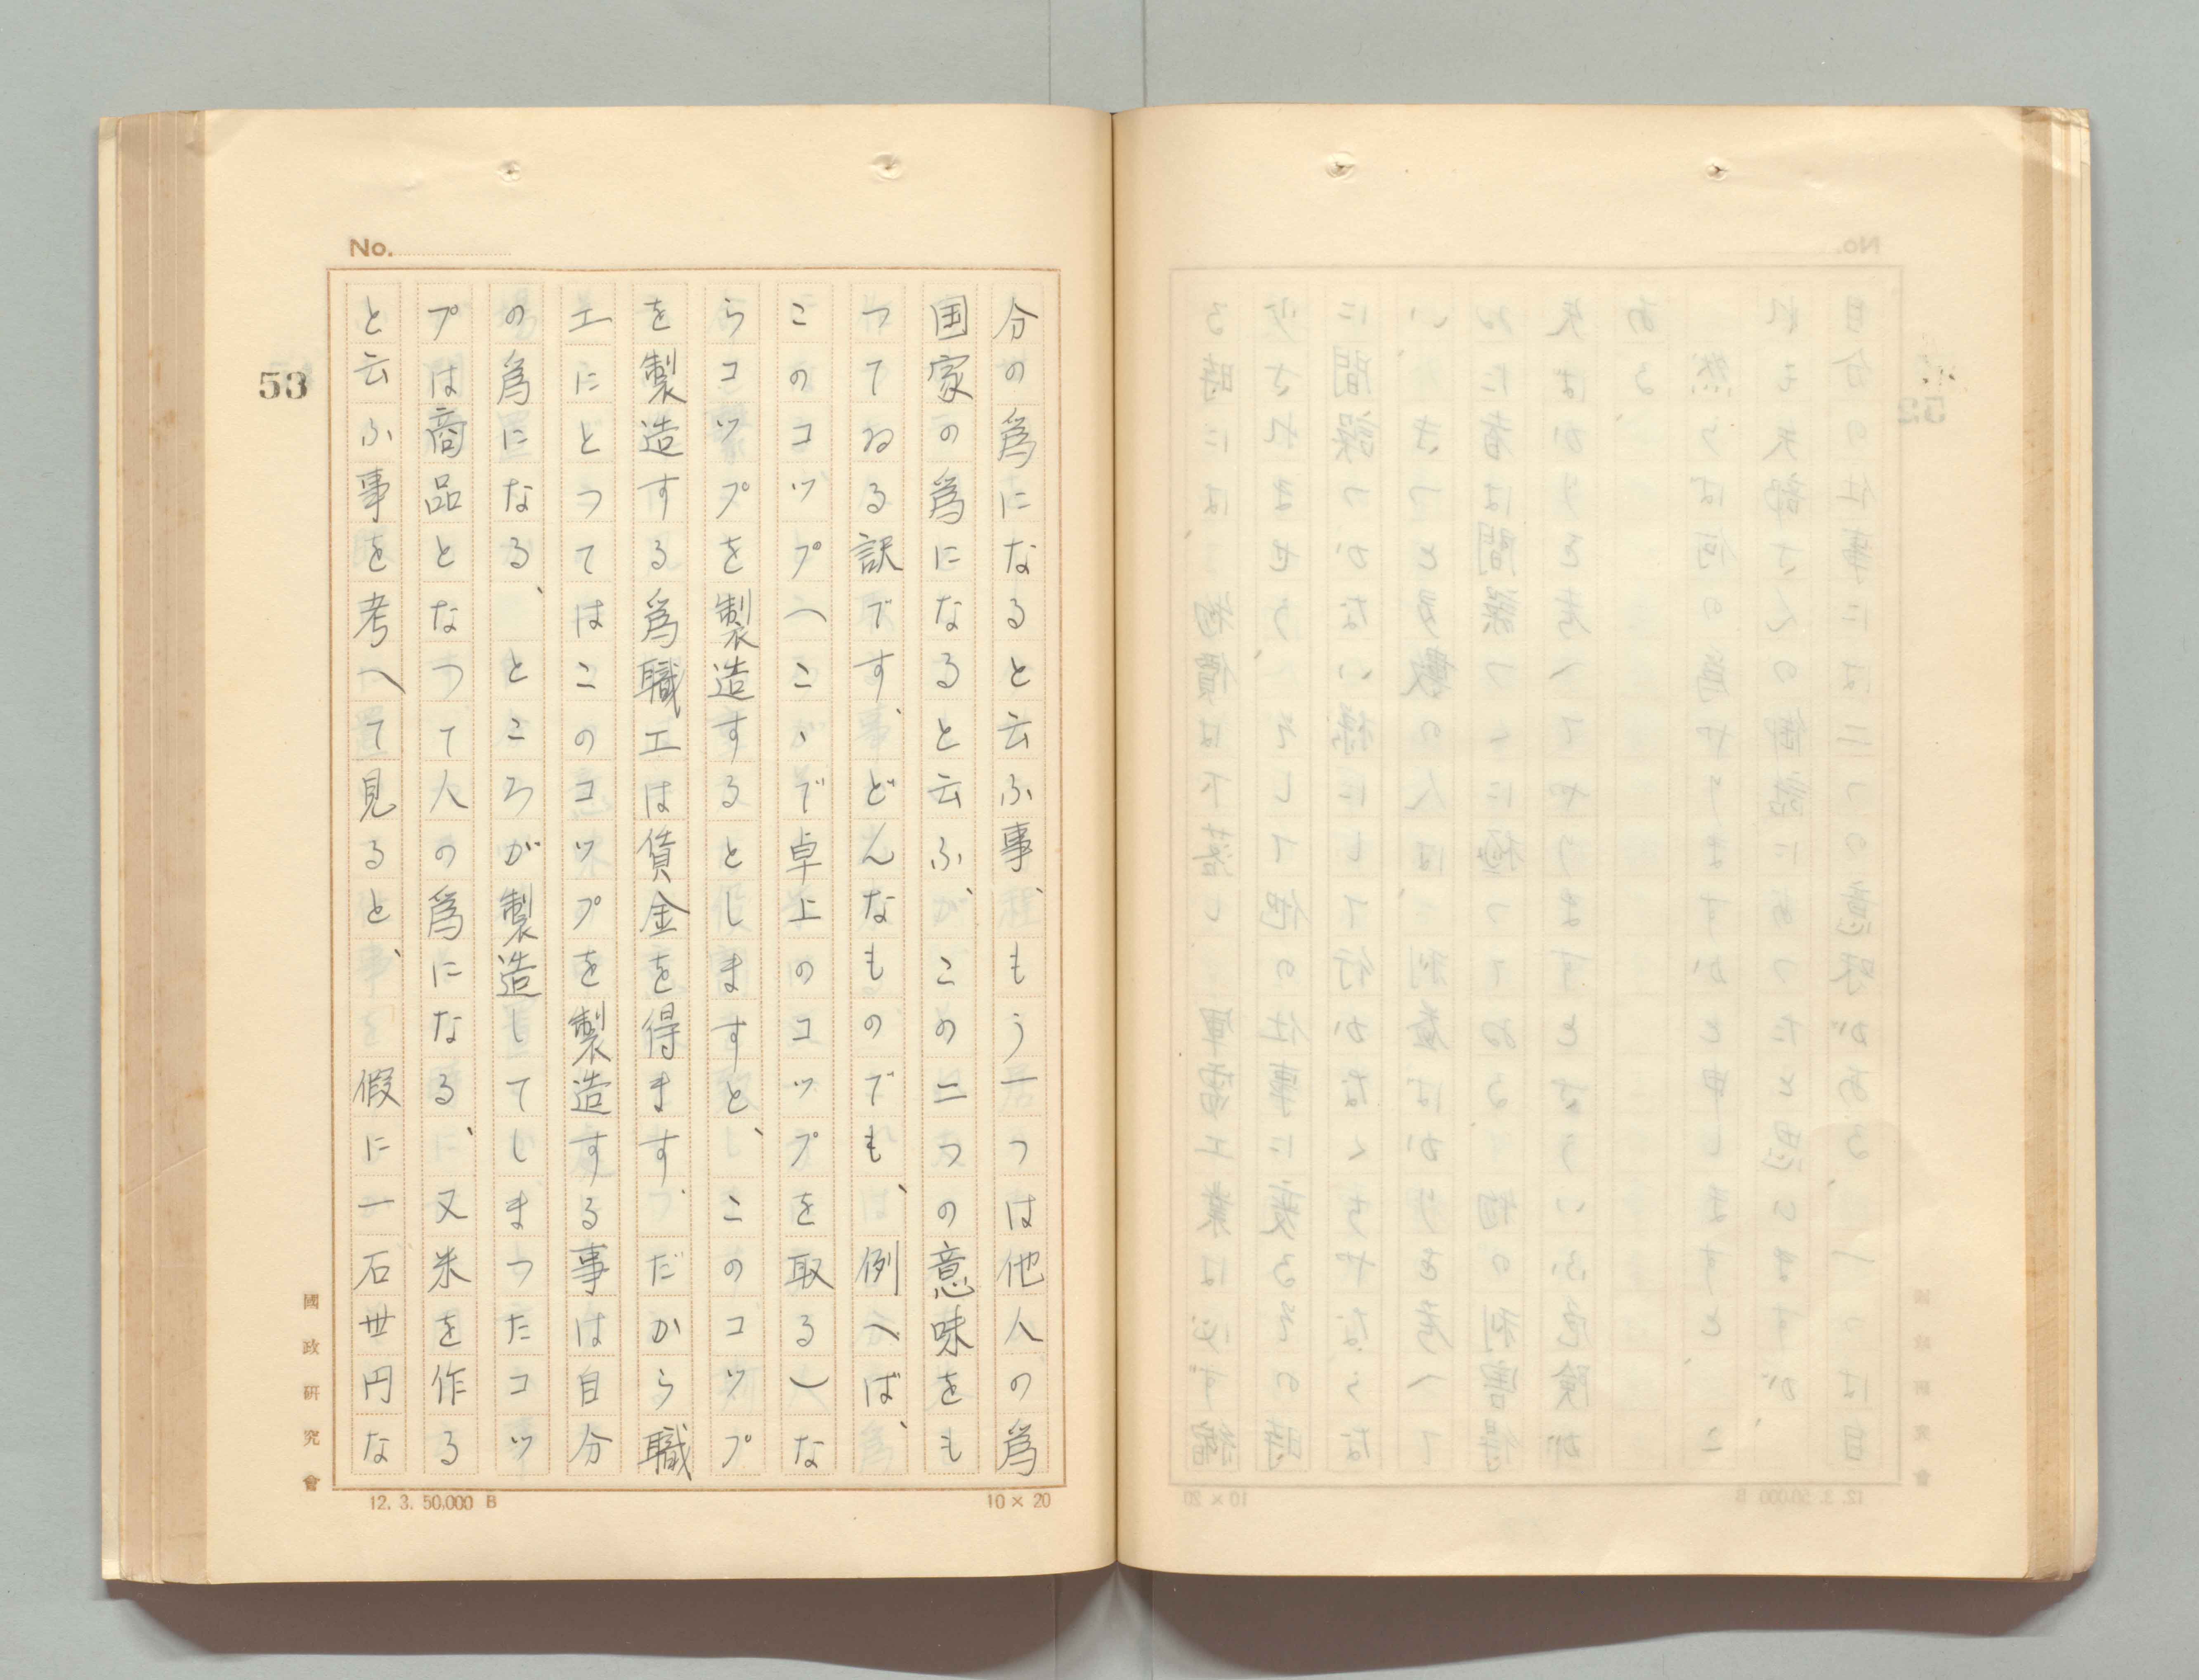 No.
53
分の為になると云ふ事、もう一つは他人の為
国家の為になると云ふ、この二つの意味をも
つてゐる訳です、どんなものでも、例へば、
このコップ(こゝで卓上のコップを取る)な
らコップを製造するとしますと、このコップ
を製造する為職工は賃金を得ます、だから職
工にとつてはこのコップを製造する事は自分
の為になる、ところが製造してしまつたコッ
プは商品となつて人の為になる、又米を作る
と云ふ事を考へて見ると、假に一石丗円な
國政研究會
12. 3. 50,000 B
10×20